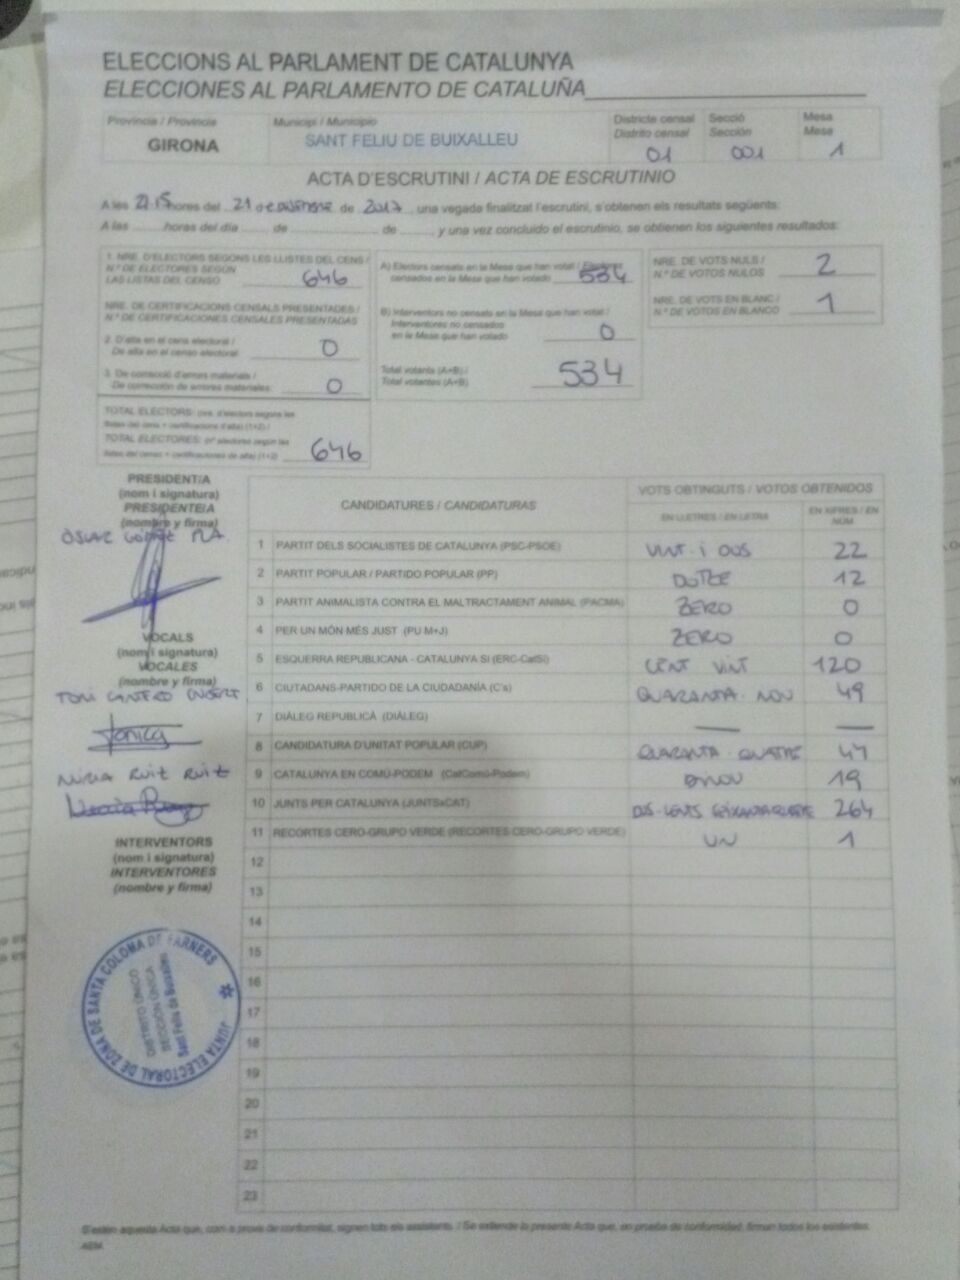 ELECCIONS AL PARLAMENT DE CATALUNYA
ELECCIONES AL PARLAMENTO DE CATALUÑA
Província / Provincia
GIRONA
Municipi / Municipio
SANT FELIU DE BUIXALLEU
Districte censal
Distrito censal
01
Secció
Sección
001
Mesa
Mesa
1
ACTA D'ESCRUTINI / ACTA DE ESCRUTINIO
A les 21:15 hores del 21 de de 2017, una vegada finalitzat l'escrutini, s'obtenen els resultats següents:
A las horas del día de de y una vez concluido el escrutinio, se obtienen los siguientes resultados:
1. NRE. D'ELECTORS SEGONS LES LLISTES DEL CENS /
N.º DE ELECTORES SEGÚN
LAS LISTAS DEL CENSO 646
NRE. DE CERTIFICACIONS CENSALS PRESENTADES /
N.º DE CERTIFICACIONES CENSALES PRESENTADAS
2. D'alta en el cens electoral /
De alta en el censo electoral: 0
3. De correcció d'errors materials /
De corrección de errores materiales: 0
TOTAL ELECTORS: (nre. d'electors segons les
llistes del cens + certificacions d'alta) (1+2) /
TOTAL ELECTORES: (nº electores según las
listas del censo + certificaciones de alta) (1+2) 646
A) Electors censats en la Mesa que han votat / Electores
censados en la Mesa que han votado 534
B) Interventors no censats en la Mesa que han votat /
Interventores no censados
en la Mesa que han votado 0
Total votants (A+B) /
Total votantes (A+B) 534
NRE. DE VOTS NULS /
N.º DE VOTOS NULOS 2
NRE. DE VOTS EN BLANC /
N.º DE VOTOS EN BLANCO 1
PRESIDENT/A
(nom i signatura)
PRESIDENTE/A
(nombre y firma)
ÒSCAR PLA
VOCALS
(nom i signatura)
VOCALES
(nombre y firma)
TONI CANTERO
Tonica
NÚRIA RUIZ RUIZ
INTERVENTORS
(nom i signatura)
INTERVENTORES
(nombre y firma)
JUNTA ELECTORAL DE ZONA DE SANTA COLOMA DE FARNERS
DISTRITO ÚNICO
SECCIÓN ÚNICA
Sant Feliu de Buixalleu
CANDIDATURES / CANDIDATURAS
VOTS OBTINGUTS / VOTOS OBTENIDOS
EN LLETRES / EN LETRA
EN XIFRES / EN NÚM
1 PARTIT DELS SOCIALISTES DE CATALUNYA (PSC-PSOE) VINT I DOS 22
2 PARTIT POPULAR / PARTIDO POPULAR (PP) DOTZE 12
3 PARTIT ANIMALISTA CONTRA EL MALTRACTAMENT ANIMAL (PACMA) ZERO 0
4 PER UN MÓN MÉS JUST (PU M+J) ZERO 0
5 ESQUERRA REPUBLICANA - CATALUNYA SÍ (ERC-CatSí) CENT VINT 120
6 CIUTADANS-PARTIDO DE LA CIUDADANÍA (C's) QUARANTA-NOU 49
7 DIÀLEG REPUBLICÀ (DIÀLEG) — —
8 CANDIDATURA D'UNITAT POPULAR (CUP) QUARANTA-QUATRE 44
9 CATALUNYA EN COMÚ-PODEM (CatComú-Podem) DINOU 19
10 JUNTS PER CATALUNYA (JUNTSxCAT) DOS-CENTS SEIXANTA-QUATRE 264
11 RECORTES CERO-GRUPO VERDE (RECORTES CERO-GRUPO VERDE) UN 1
12
13
14
15
16
17
18
19
20
21
22
23
S'estén aquesta Acta que, com a prova de conformitat, signen tots els assistents. / Se extiende la presente Acta que, en prueba de conformidad, firman todos los asistentes.